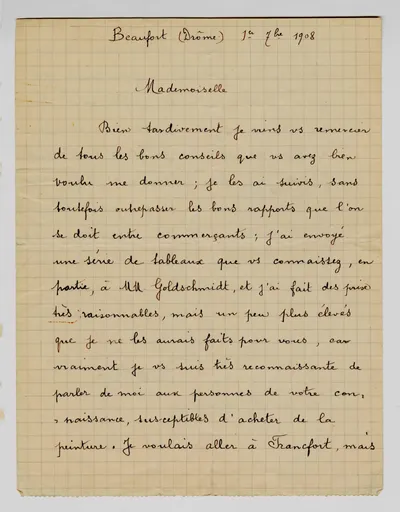 Beaufort (Drôme) 1er 7bre 1908
Mademoiselle
Bien tardivement je viens vs remercier
de tous les bons conseils que vs avez bien
voulu me donner ; je les ai suivis, sans
toutefois outrepasser les bons rapports que l'on
se doit entre commerçants ; j'ai envoyé
une série de tableaux que vs connaissez, en
partie, à MM Goldschmidt, et j'ai fait des prix
très raisonnables, mais un peu plus élevés
que je ne les aurais faits pour vous, car
vraiment je vs suis très reconnaissante de
parler de moi aux personnes de votre con=
=naissance, susceptibles d'acheter de la
peinture. Je voulais aller à Francfort, mais